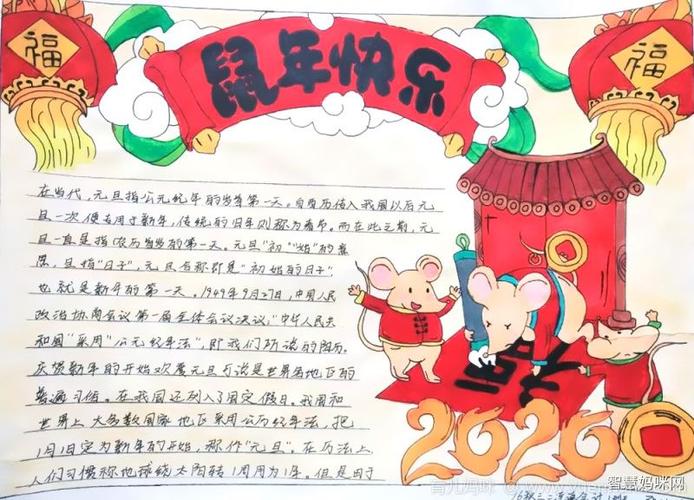 福
鼠年快乐
福
在当代,元旦指公元纪年的岁首第一天。自西历传入我国以后元
旦一次便专用于新年,传统的旧年则称为春节。而在此之前,元
旦一直是指农历岁首的第一天。元旦"初""始"的意
思,旦指"日子",元旦合称即是"初始的日子"
也就是新年的第一天。1949年9月27日,中国人民
政治协商会议第一届全体会议决议,"中华人民共
和国"采用"公元纪年法",即我们所说的阳历。
庆贺新年的开始欢度元旦可说是世界各地区的
普遍习俗。在我国还列入了固定假日。我国和
世界上大多数国家地区采用公历纪年法,把
1月1日定为新年的开始,称作"元旦"。在历法上
人们习惯称地球绕太阳转1周用为1年。但是由于
2020
智慧妈咪网